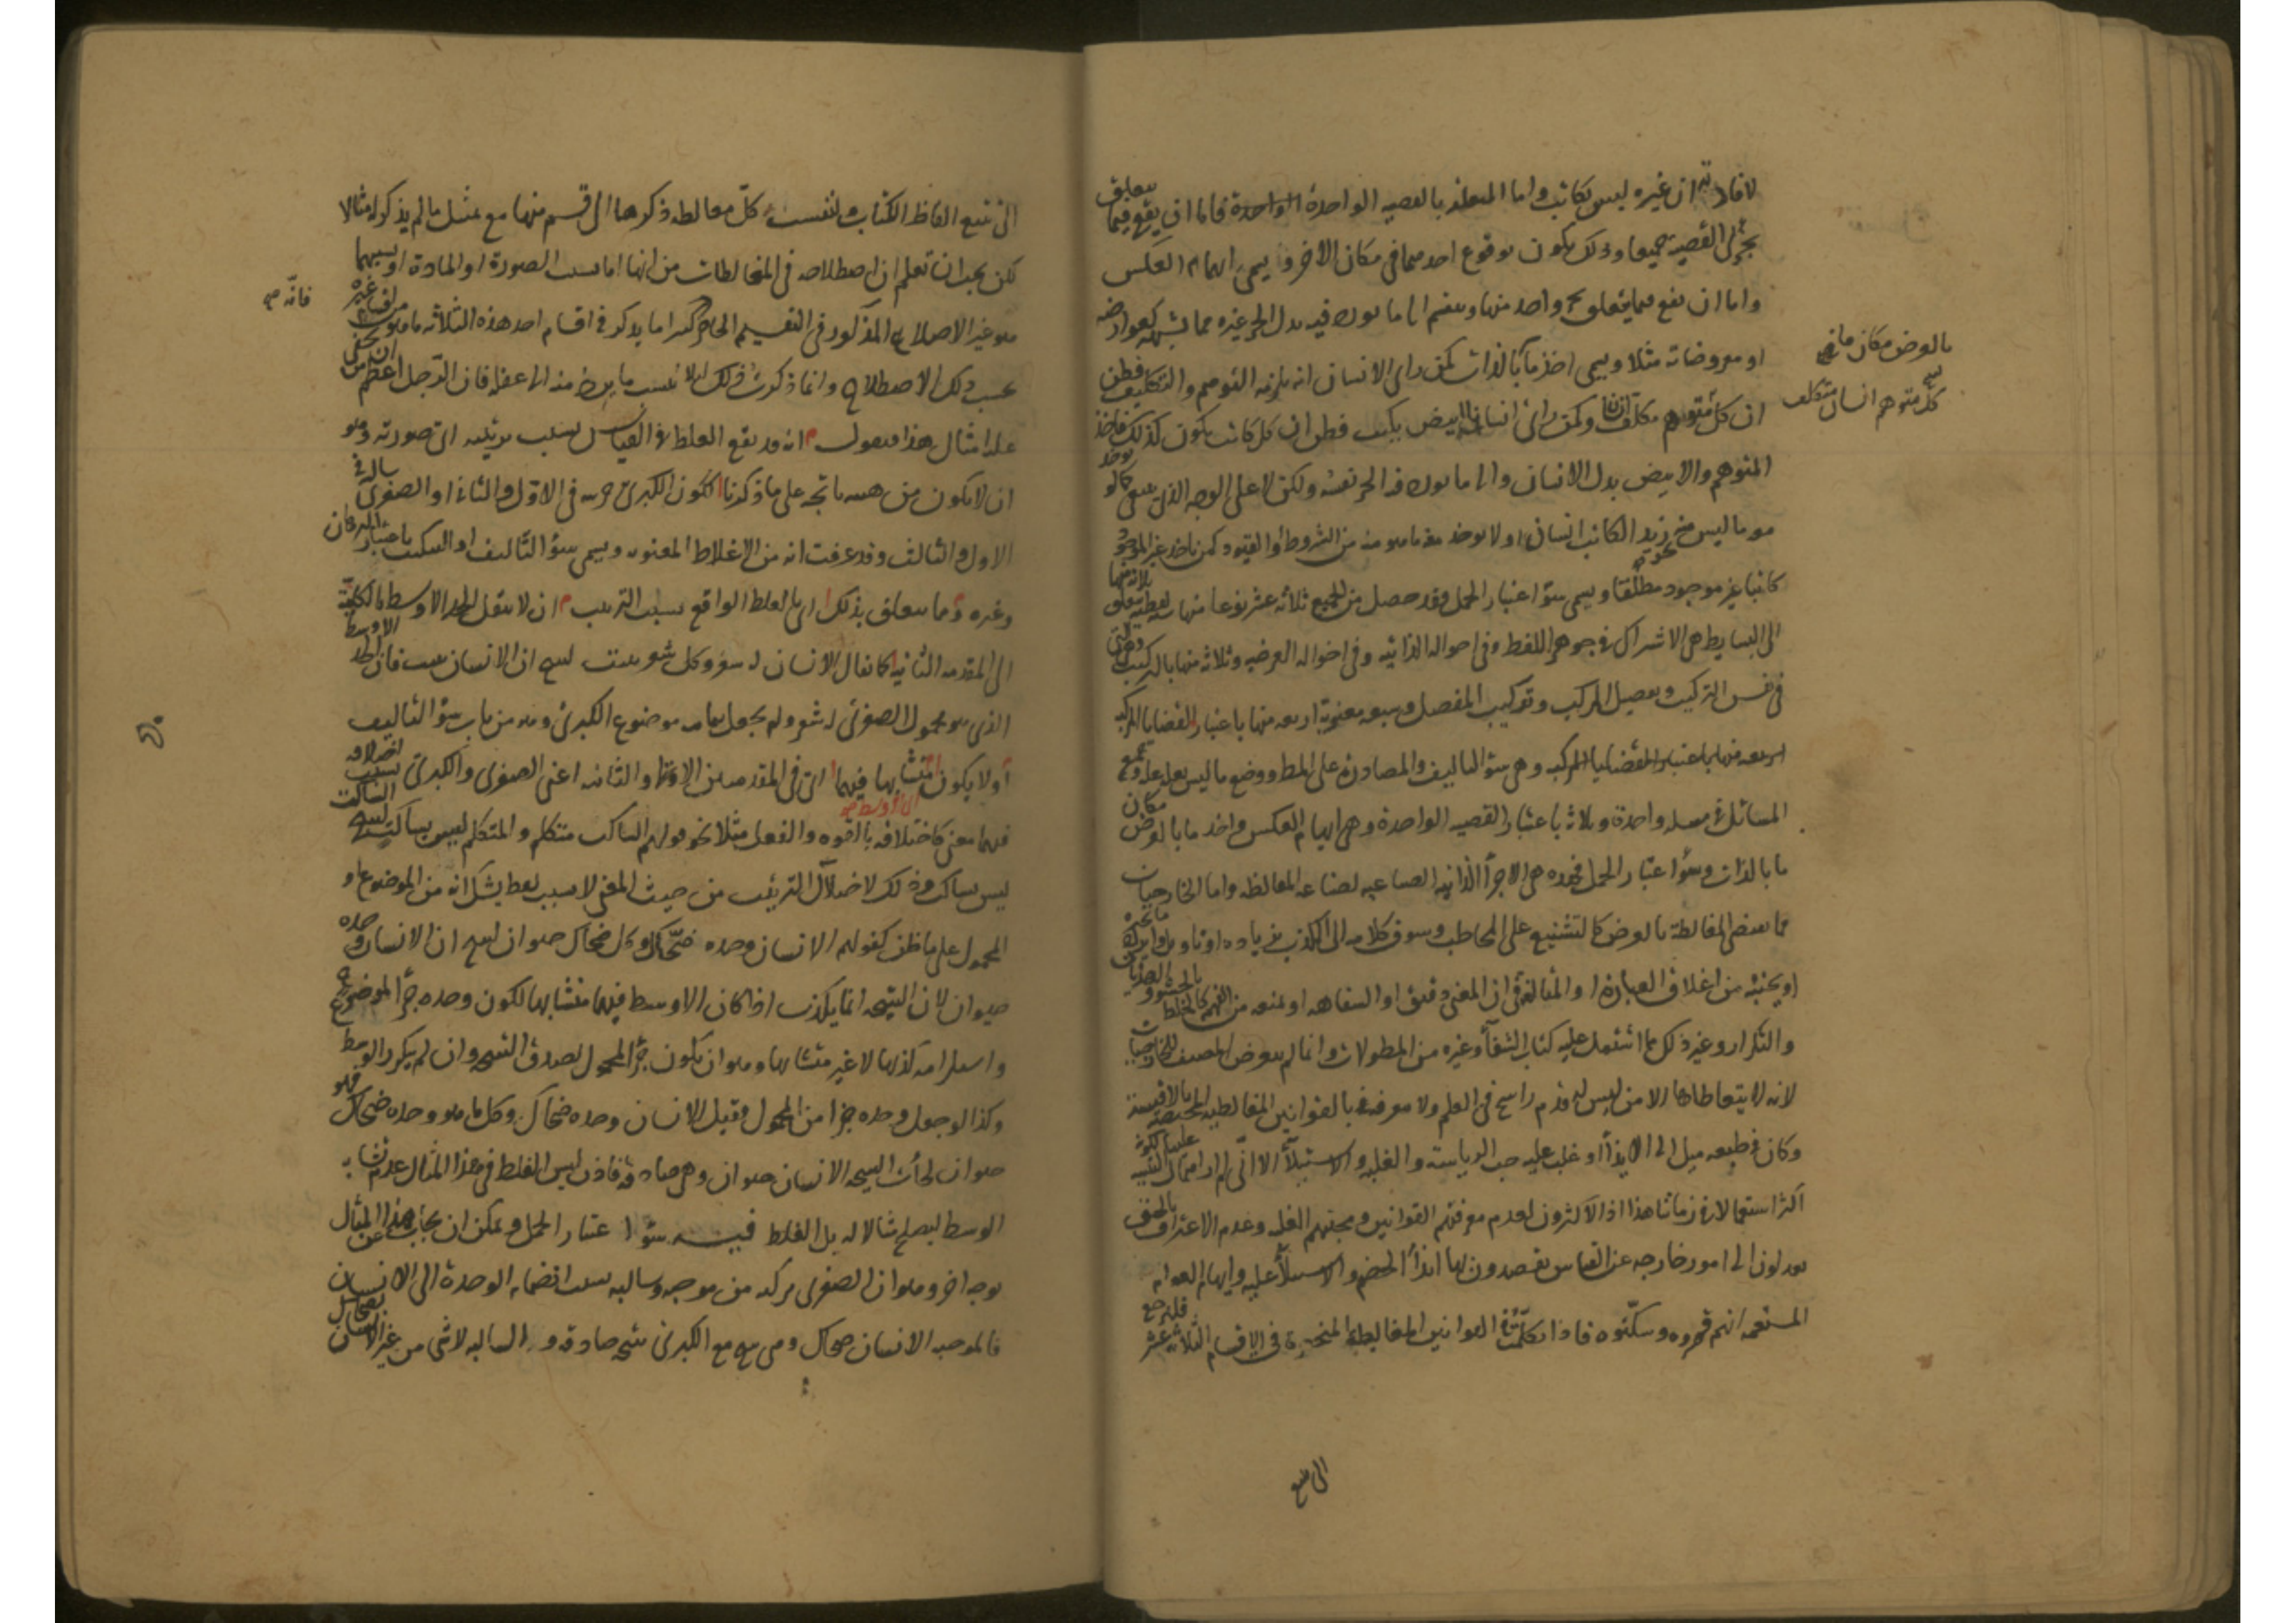 لافادته ان غيره ليس بكاتب واما المتعلقه بالقصيه الواحدة الواحدة فاما ان يقع فيما يتعلق
بجزئى القضية جميعا وذلك يكون بوقوع احدهما فى مكان الاخر ويسمى ايهام العكس
واما ان يقع فيما يتعلق بجزء واحد منها وينقسم الى ما يورد فيه بدل الجزء غيره مما يشبهه كعوارضه
او معروضاته مثلا ويسمى اخذ ما بالذات كمن راى الانسان انه يلزمه التوهم والتكليف فظن
ان كل متوهم مكلف وكمن راى انسانا ابيض يكتب فظن ان كل كاتب يكون كذلك فاخذ
المتوهم والابيض بدل الانسان والى ما يورد فيه الجزء نفسه ولكن لا على الوجه الذى ينبغى كما لو يوخذ
معه ما ليس منه نحو زيد الكاتب انسان او لا يوخذ معه ما هو منه من الشروط او القيود كمن ياخذ غير الموجود
كاتبا غير موجود مطلقا ويسمى سوء اعتبار الحمل وقد حصل من الجميع ثلاثة عشر نوعا منها لفظيه يتعلق ثلاثه منها
الى البسايط هى الاشتراك فى جوهر اللفظ وفى احواله الذاتيه وفى احواله العرضيه وثلاثه منها بالتركيب وهى التى
فى نفس التركيب وتفصيل المركب وتركيب المفصل وسبعه معنوية اربعه منها باعتبار القضايا المركبه
اربعه منها باعتبار القضايا المركبه وهى سوء التاليف والمصادرة على المط ووضع ما ليس بعله عله وجمع
المسائل فى مسله واحدة وثلاثه باعتبار القصيه الواحدة وهى ايهام العكس واخذ ما بالعرض مكان
ما بالذات وسوء اعتبار الحمل فهذه هى الاجزأ الذاتيه الصناعيه لصناعه المغالطه واما الخارجيات
مما يقتضى المغالطة بالعرض كالتشنيع على المخاطب وسوق كلامه الى الكذب بزياده او تاويل وايراد ما يحيره
او يجبنه من اغلاق العبارة او المبالغة فى ان المعنى دقيق او السفاهه او منعه من الفهم كالخلط بالحشو والهذيان
والتكرار وغير ذلك مما اشتمل عليه كتاب الشفآ وغيره من المطولات وانما لم يتعرض المصنف للخارجيات
لانه لا يتعاطاها الا من ليس له قدم راسخ فى العلم ولا معرفة بالقوانين المغالطيه المختصه بالاقيسة
وكان فى طبعه ميل الى الايذأ او غلب عليه حب الرياسته والغلبه والاستيلآ الا انى لم ار اهمال التنبيه عليها لكثرة
اكثر استعمالا فى زماننا هذا اذ الاكثرون لعدم معرفتهم القوانين ومحبتهم الغلبه وعدم الاعتراف بالحق
يعدلون الى امور خارجه عن القياس يقصدون بها ايذأ الخصم والاستيلآ عليه وايهام العوام
المستمعه انهم قهروه وسكتوه فاذا تكلمنا فى القوانين المغالطية المنحصرة فى الاقسام الثلاثه عشر فلنرجع
الى تتبع
بالعرض مكان ما
كل متوهم انسان متكلف
الى تتبع الفاظ الكتاب ولننسب كل مغالطه ذكرها الى قسم منها مع تمثيل ما لم يذكر له مثالا
لكن يجب ان تعلم ان اصطلاحه فى المغالطات من انها اما بسبب الصورة او المادة او بسببهما
هو غير الاصلاح المذكور فى التقسيم الحاصر كثيرا ما يذكر فى اقسام احد هذه الثلاثه ما هو من اقسام غيره
بحسب ذلك الاصطلاح وانما ذكرت ذلك لئلا ينسب ما يعرض منه الى اعفله فان الرجل اعظم من ان يخفى
عليه امثال هذا فنقول انه قد يقع الغلط فى القياس بسبب ترتيبه اى صورته وهو
ان لا يكون من هيئه ناتجه على ما ذكرنا لكون الكبرى جزئيه فى الاول والثانى او الصغرى سالبه فى
الاول والثالث وقد عرفت انه من الاغلاط المعنويه ويسمى سوء التاليف او التبكيت باعتبار البرهان
وغيره ومما يتعلق بذلك اى بالغلط الواقع بسبب الترتيب ان لا ينقل الحد الاوسط بالكلية
الى المقدمه الثانيه كما يقال الانسان له شعر وكل شعر ينبت لينتج ان الانسان ينبت فان الحد الاوسط
الذى هو محمول الصغرى له شعر ولم يجعل بتمامه موضوع الكبرى وهو من باب سوء التاليف
او لا يكون متشابها فيهما اى فى المقدمتين الاولى والثانيه اعنى الصغرى والكبرى بسبب اختلافه
فيهما معنى كاختلافه بالقوه والفعل مثلا نحو قولهم الساكت متكلم والمتكلم ليس بساكت لينتج الساكت
ليس بساكت وذلك لاختلال الترتيب من حيث المعنى لا بسبب لفظ يشكل انه من الموضوع او
المحمول على ما ظن كقولهم الانسان وحده ضحاك وكل ضحاك حيوان لينتج ان الانسان وحده
حيوان لان النتيجه انما يكذب اذا كان الاوسط فيهما متشابها لكون وحده جزأ الموضوع
واستلزامه كذبها لا غير متشابها وهو ان يكون جزأ المحمول لصدق النتيجه وان لم يكرر الوسط
وكذا لو جعل وحده جزا من المحمول وقيل الانسان وحده ضحاك وكل ما هو وحده ضحاك فهو
حيوان لجأت النتيجه الانسان حيوان وهى صادقه فاذن ليس الغلط فى هذا المثال عدم تشابه
الوسط ليصلح مثالا له بل الغلط فيه سوء اعتبار الحمل ويمكن ان يجاب عن هذا المثال
بوجه اخر وهو ان الصغرى مركبه من موجبه وسالبه بسبب انضمام الوحدة الى الانسان
فالموجبه الانسان ضحاك وهى ينتج مع الكبرى نتيجه صادقه والسالبه لا شى من غير الانسان بضحاك
فانّه صح